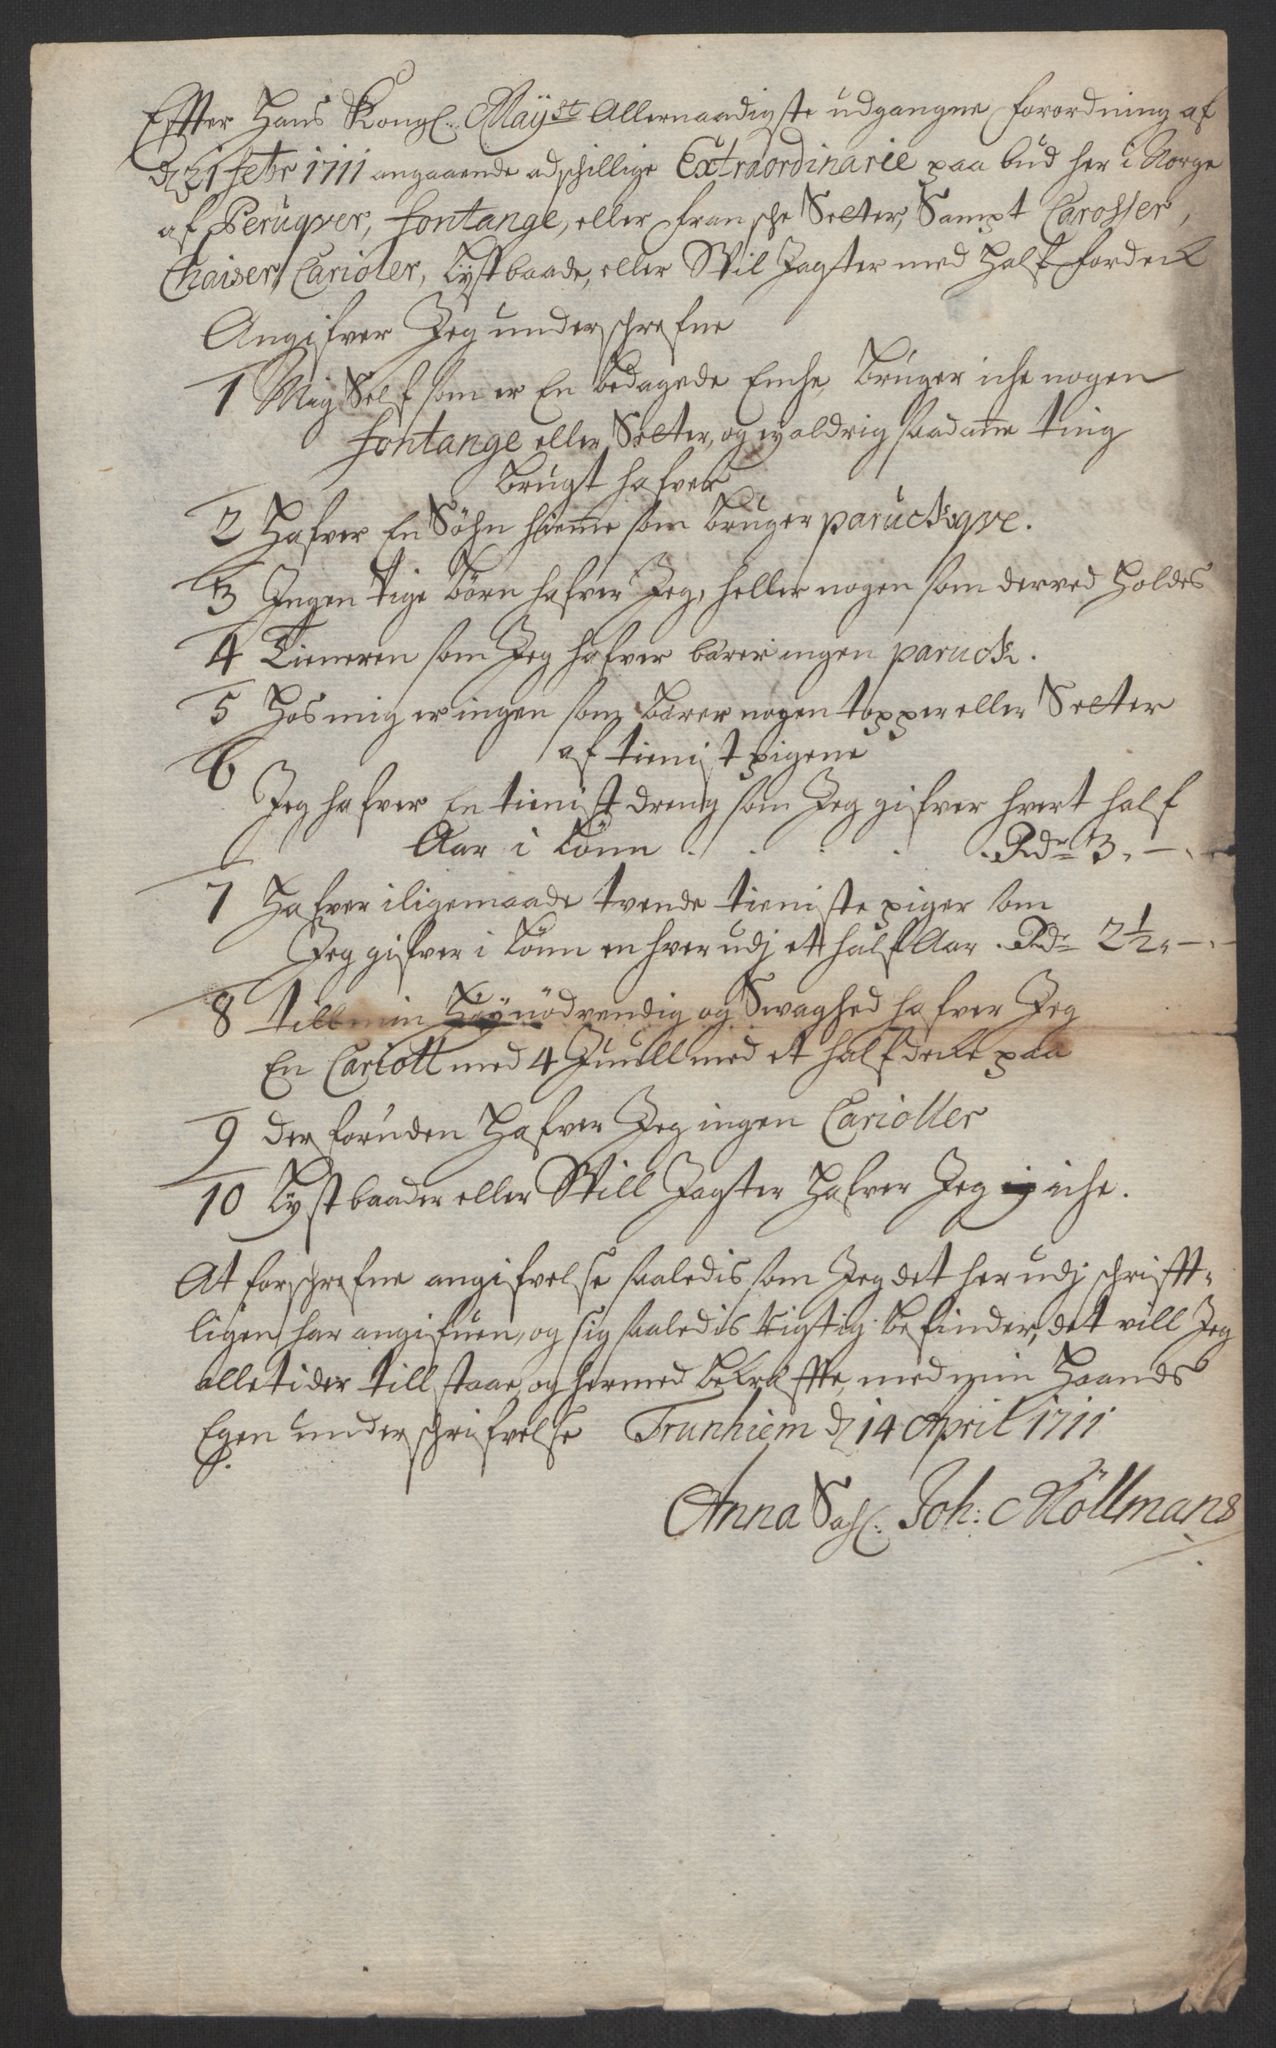 Effter Hans Kongl: Mayst: Allernaadigste udgangne forordning af
dj 21 febr 1711 angaaende adschillige Extraordinarie paabud her i Norge
af Peruqver, fontange, eller fransche Setter, Sampt Carosser,
Chaiser, Carioler, Lystbaade, eller Spil Jagter med Half fordeck
Angifver Jeg underschrefne
1 Mig Self som er En bedagede Enche, Brúger iche nogen
fontange eller Setter, og ey aldrig saadanne ting
Brúgt hafver
2 Hafver En Söhn hiemme som brúger paruckqve.
3 Ingen tige börn hafver Jeg, heller nogen som derved Holdes
4 Tieneren som Jeg hafver bærer ingen paruck.
5 Hos mig er ingen som Bærer nogen topper eller Setter
af tienist pigene
6
Jeg hafver En tienist dreng som Jeg gifver hvert half
Aar i Lönn . . . . . Rdr 3 , — , —
7 Hafver iligemaade tvende tieniste piger som
Jeg gifver i Lönn en hver udj et half Aar . Rdr 2 1/2 , — , —
8 till min Höynödvendig og Swaghed hafver Jeg
En Cariott med 4 Juull med et half decke paa
9 der forúden Hafver Jeg ingen Carioller
10 Lystbaader eller Spill Jagter Hafver Jeg iche.
At forschrefne angifvelse saaledis som Jeg det her udj schrifft-
ligen har angifuen, og sig saaledis rigtig befinder, det vill Jeg
alletider till staae, og hermed bekræffte, med min Haands
Egen underschrifvelse Trunhiem dj 14 April 1711
Anna Sahl: Joh: Möllmans